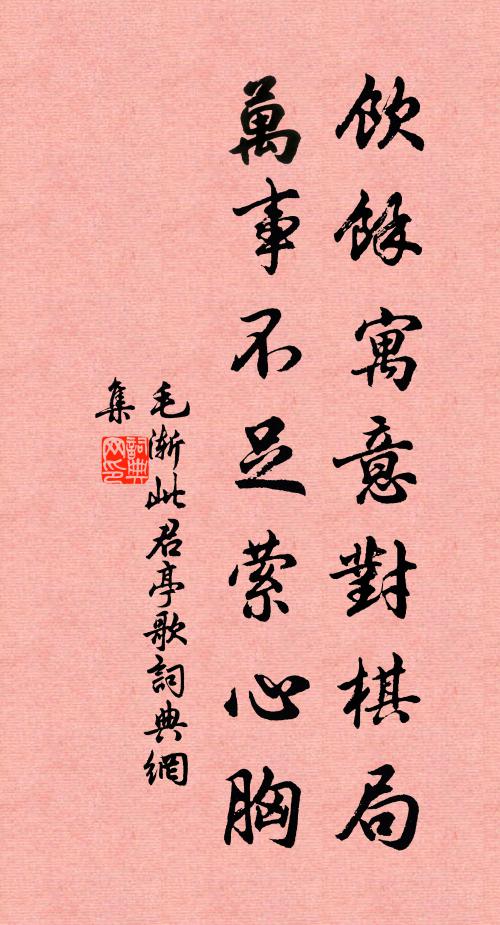 飲餘寓意對棋局
萬事不足縈心胸
毛漸此君亭歌詞典網
集
詞典網印